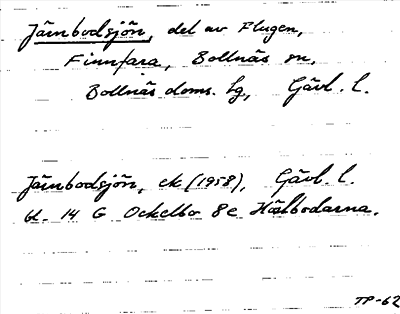 Järnbodsjön, del av Flugen,
Finnfara, Bollnäs sn.
Bollnäs doms. lg, Gävl. l.
Järnbodsjön, ek (1958), Gävl. l.
bl. 14 G Ockelbo 8e Hälbodarna.
TP-62